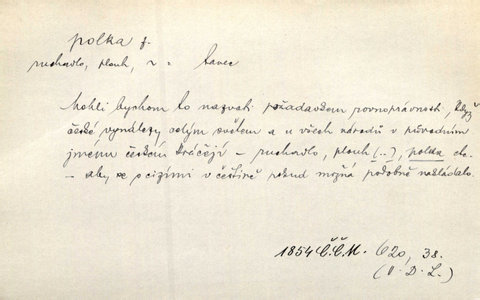 polka f.
ruchadlo, plouh, v = tanec
Mohli bychom to nazvati požadavkem rovnoprávnosti, když
české vynálezy celým světem a u všech národů v původním
jménu českém kráčejí – ruchadlo, plouh (..), polka etc.
– aby se s cizími v češtině pokud možná podobně nakládalo.
1854 Č.Č.M. 620, 38.
(V. D. L.)